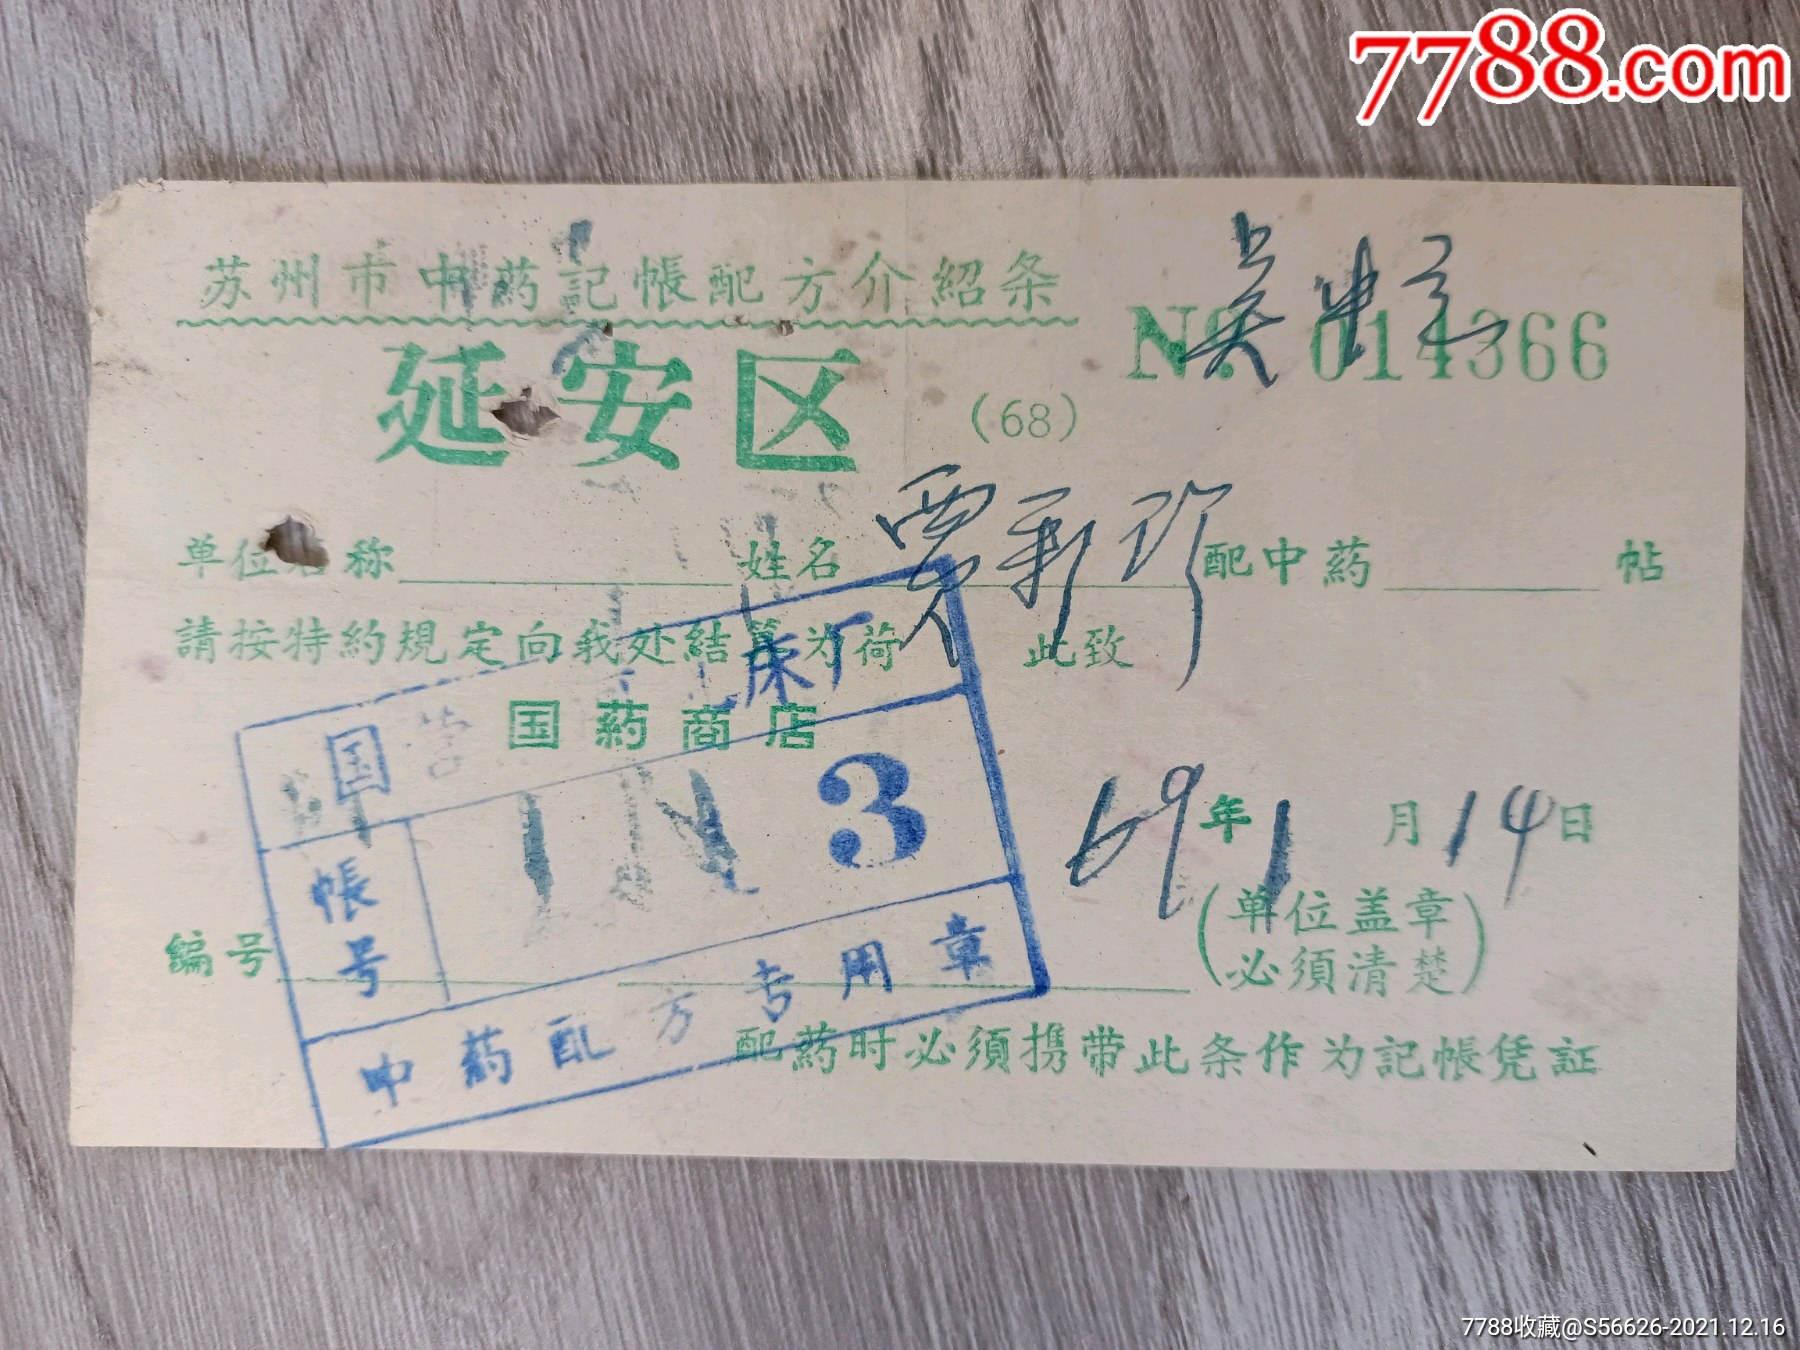 7788.com
苏州市中药記帳配方介紹条
№ 014366
延安区
(68)
单位名称 姓名 贾彩珍 配中药 帖
請按特約規定向我处結算为荷 此致
国药商店
国营 床厂
帳号 3
中药配方专用章
69年1月14日
(单位盖章
必須清楚)
编号
配药时必須携带此条作为記帳凭証
7788收藏@S56626-2021.12.16